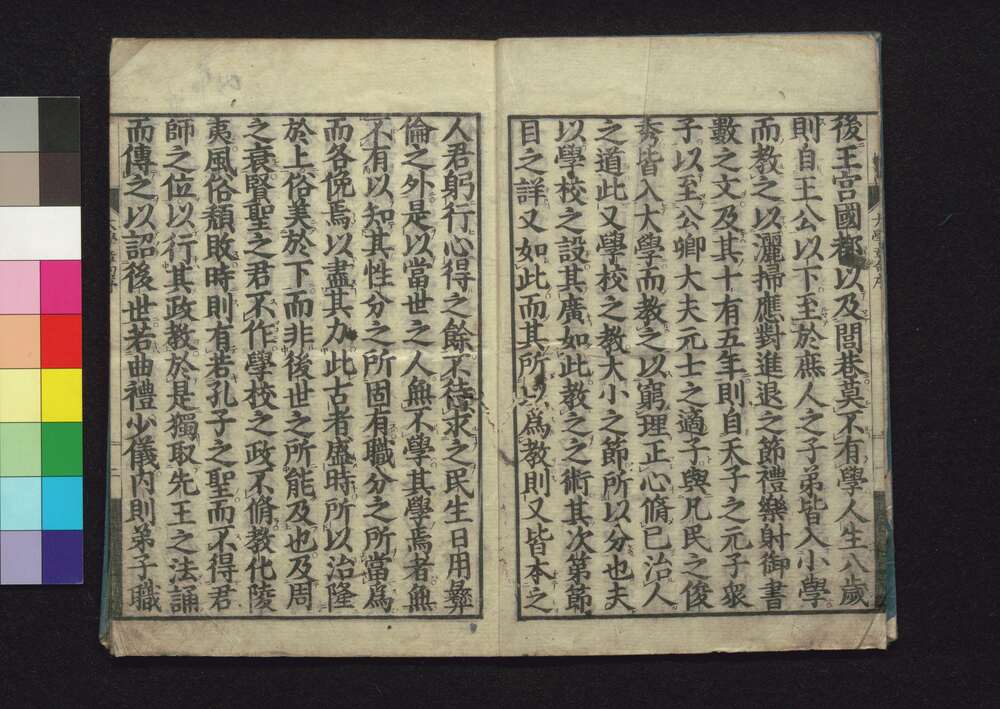 後王宮國都以及閭巷莫不有學人生八歲
則自王公以下至於庶人之子弟皆入小學
而教之以灑掃應對進退之節禮樂射御書
數之文及其十有五年則自天子之元子衆
子以至公卿大夫元士之適子與凡民之俊
秀皆入大學而教之以窮理正心脩己治人
之道此又學校之教大小之節所以分也夫
以學校之設其廣如此教之之術其次第節
目之詳又如此而其所以爲教則又皆本之
人君躬行心得之餘不待求之民生日用彝
倫之外是以當世之人無不學其學焉者無
不有以知其性分之所固有職分之所當爲
而各俛焉以盡其力此古者盛時所以治隆
於上俗美於下而非後世之所能及也及周
之衰賢聖之君不作學校之政不脩教化陵
夷風俗頹敗時則有若孔子之聖而不得君
師之位以行其政教於是獨取先王之法誦
而傳之以詔後世若曲禮少儀内則弟子職